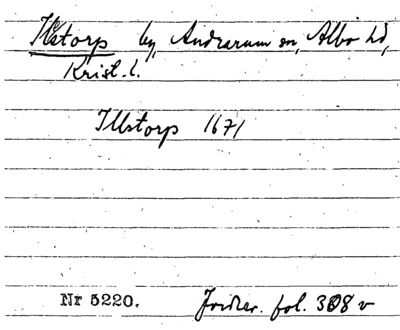 Illstorp by, Andrarum sn, Albo hd,
Krist. l.
Illstorp 1671
Nr 5220. Jordrev. fol. 308 v